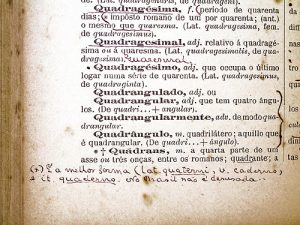 Quadragésima, f. (período de quarenta
dias; imposto romano de um por quarenta; (ant.)
o mesmo que quaresma. (Lat. quadragesima, fem.
de quadragesimus).
Quadragesimal, adj. relativo á quadragé-
sima ou á quaresma. (Lat. quadragesimalis, de quadra-
gesima). quaresmal
Quadragésimo, adj. que occupa o último
logar numa série de quarenta. (Lat. quadragesimus, de
quadraginta).
Quadrangulado, adj. ou
Quadrangular, adj. que tem quatro ângu-
los. (De quadri...+ angular).
Quadrangularmente, adv. de modo qua-
drangular.
Quadrângulo, m. quadrilátero; aquillo que
é quadrangular. (De quadri...+ ângulo).
† Quadrans, m. a quarta parte de um
asse ou três onças, entre os romanos; quadrante; a
(x) É a melhor forma (lat. quaterni, v. caderno,
e it. quaderno. No Brasil não é desusada.